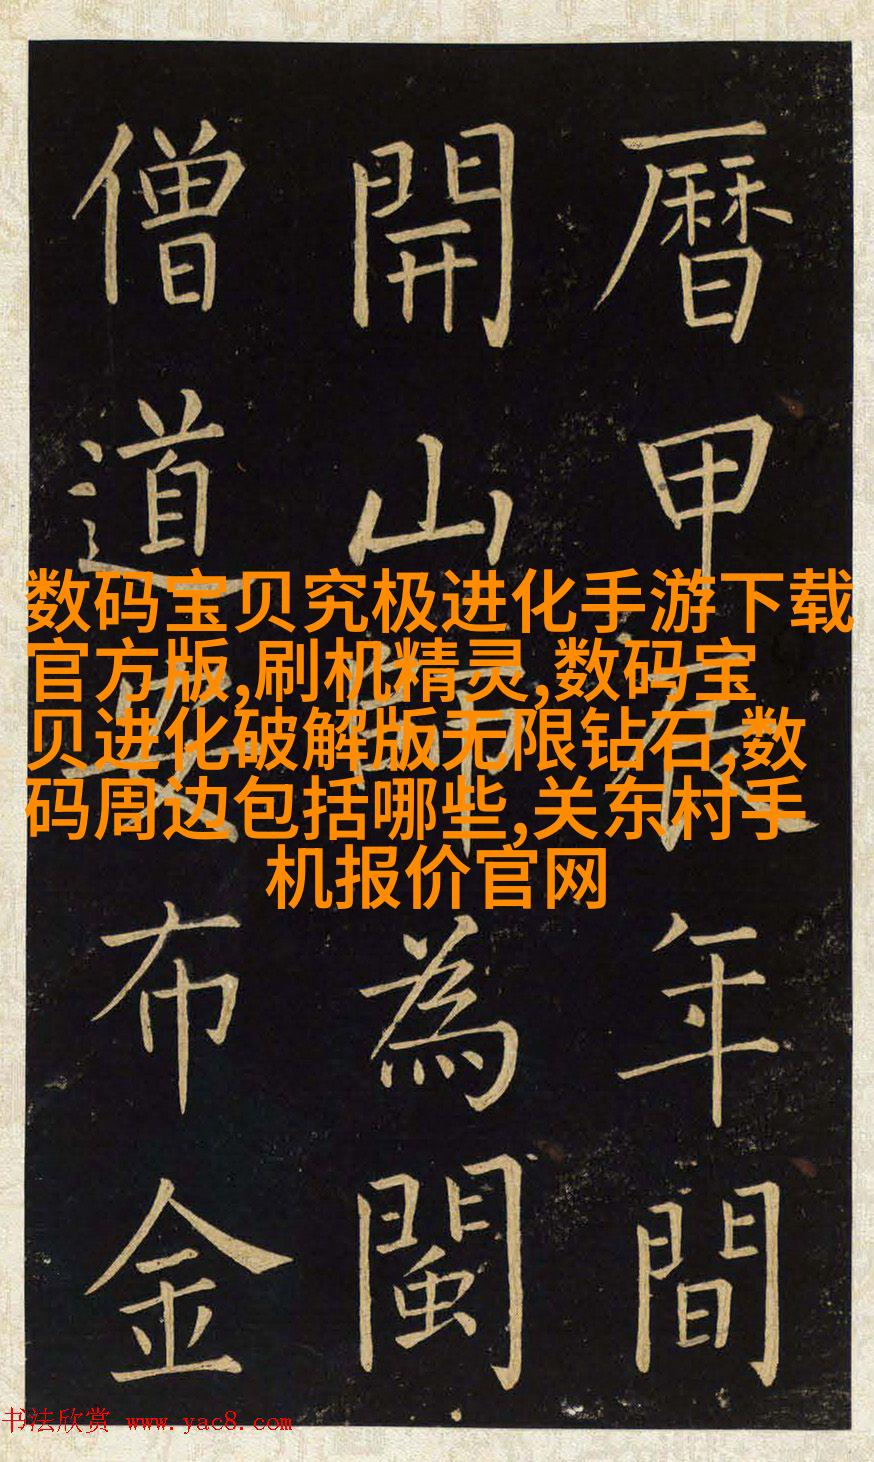 曆甲辰年間
開山師為閩
僧道布金
数码宝贝究极进化手游下载
官方版,刷机精灵,数码宝
贝进化破解版无限钻石,数
码周边包括哪些,关东村手
机报价官网
书法欣赏 www.yac8.com